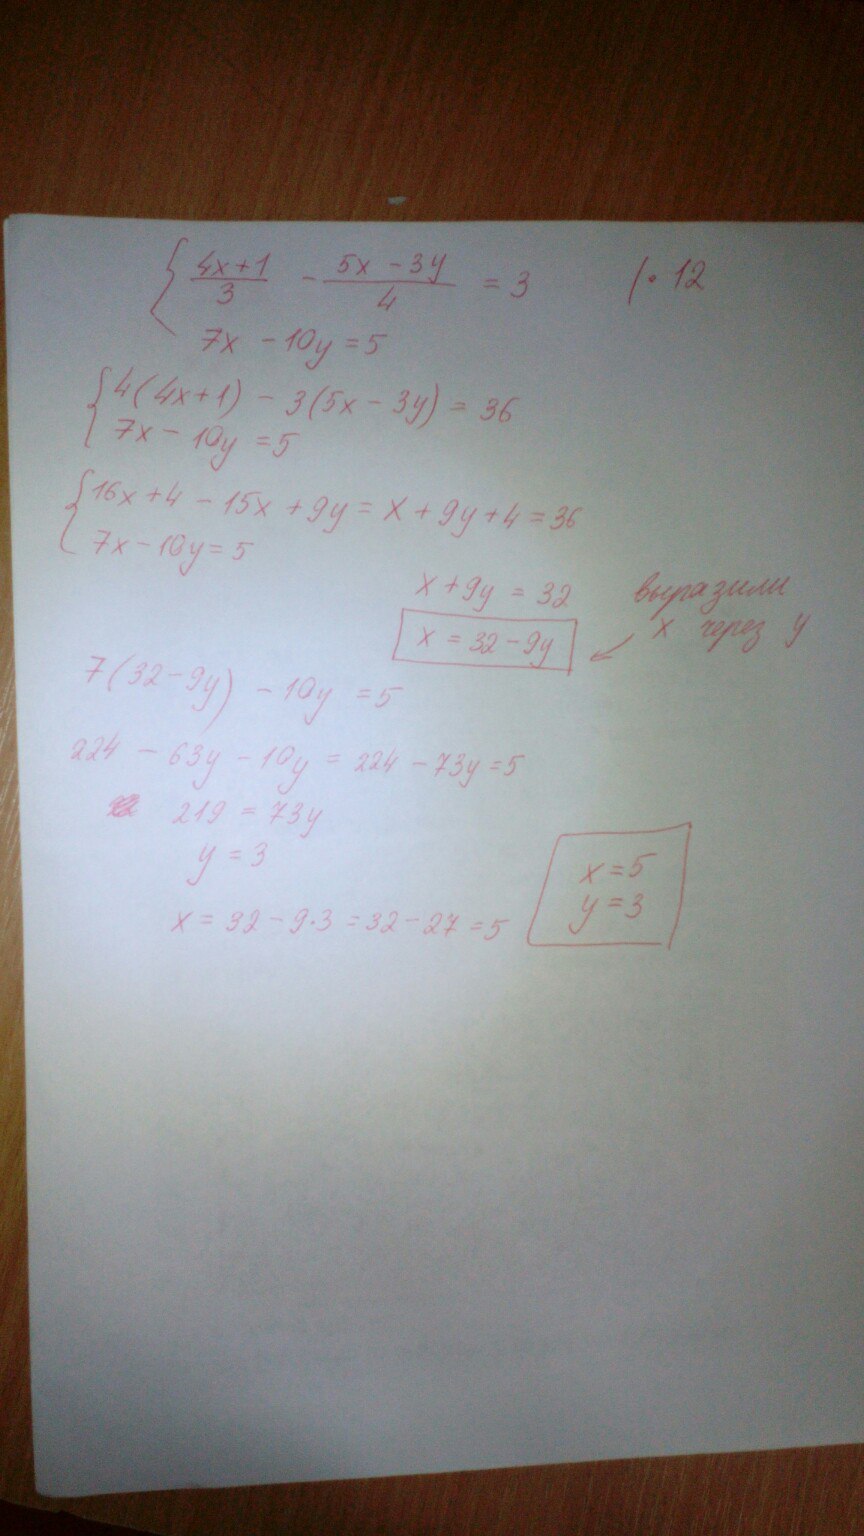 { (4x+1)/3 - (5x-3y)/4 = 3 | · 12
7x - 10y = 5
{ 4(4x+1) - 3(5x - 3y) = 36
7x - 10y = 5
{ 16x + 4 - 15x + 9y = x + 9y + 4 = 36
7x - 10y = 5
x + 9y = 32
x = 32 - 9y
выразили
x через y
7(32 - 9y) - 10y = 5
224 - 63y - 10y = 224 - 73y = 5
219 = 73y
y = 3
x = 32 - 9·3 = 32 - 27 = 5
x = 5
y = 3